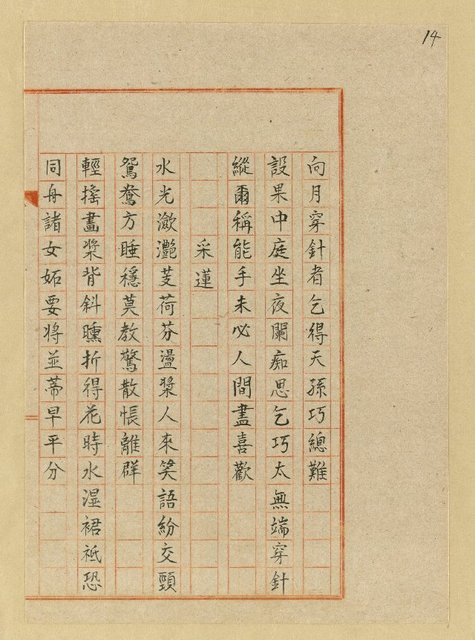 14
向月穿針者乞得天孫巧總難
設果中庭坐夜闌痴思乞巧太無端穿針
縱爾稱能手未必人間盡喜歡
采蓮
水光瀲灎芰荷芬盪槳人來笑語紛交頸
鴛鴦方睡穩莫教驚散悵離群
輕搖畫槳背斜曛折得花時水濕裙祗恐
同舟諸女妬要将並蒂早平分